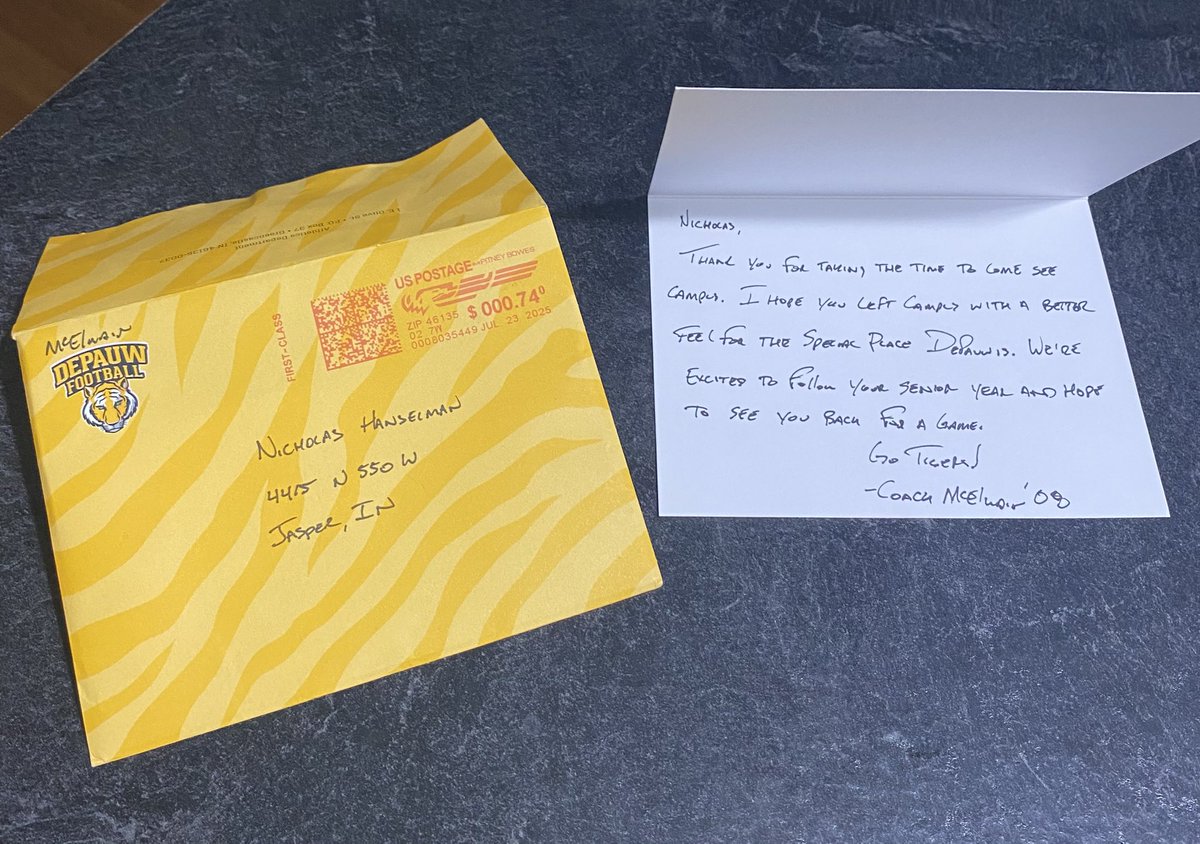 1 E. Olive St. • P.O. Box 37 • Greencastle, IN 46135-0037
Athletics Department
McElwain
DEPAUW
FOOTBALL
FIRST-CLASS
US POSTAGE PITNEY BOWES
ZIP 46135 $ 000.74⁰
02 7W
0008035449 JUL 23 2025
Nicholas Hanselman
4415 N 550 W
Jasper, IN
Nicholas,
Thank you for taking the time to come see
campus. I hope you left campus with a better
feel for the special place DePauw is. We're
excited to follow your senior year and hope
to see you back for a game.
Go Tigers!
-Coach McElwain '08